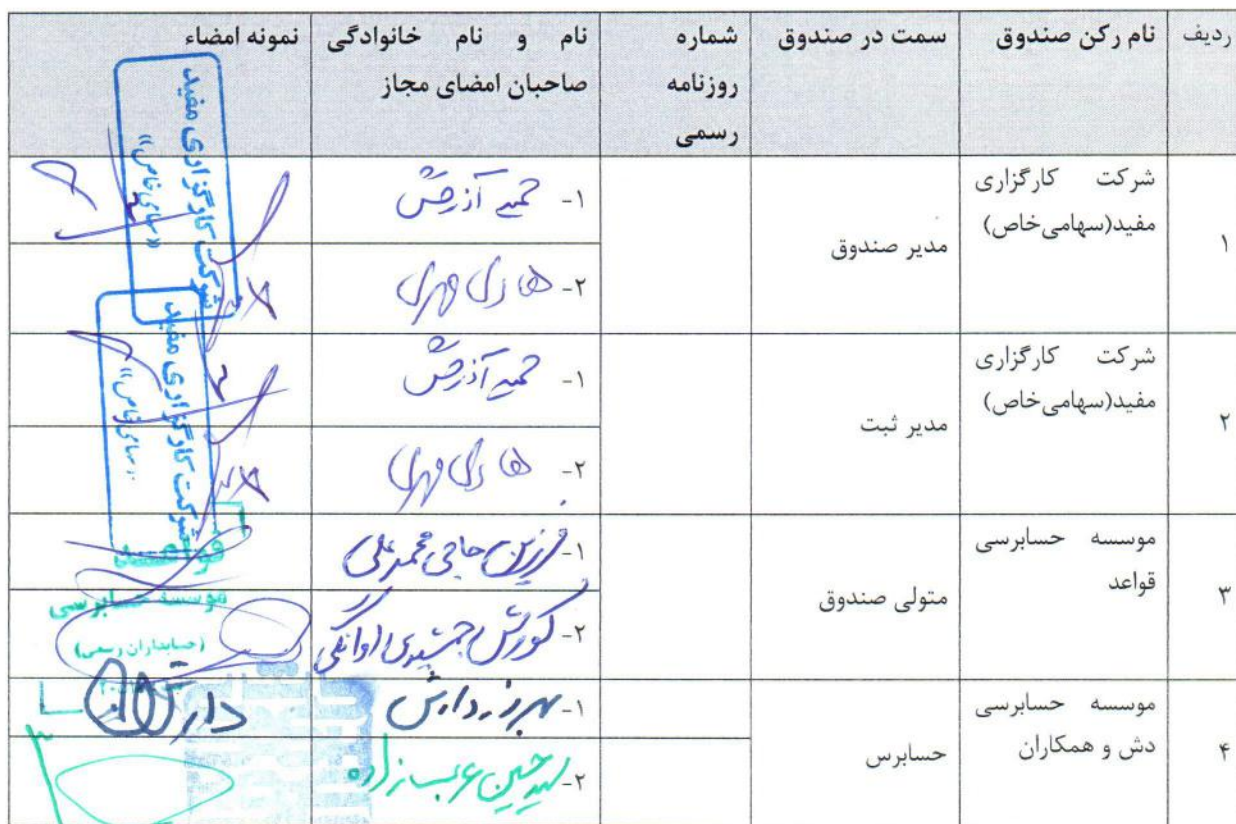 ردیف نام رکن صندوق سمت در صندوق شماره روزنامه رسمی نام و نام خانوادگی صاحبان امضای مجاز نمونه امضاء
۱ شرکت کارگزاری مفید(سهامی‌خاص) مدیر صندوق
۱- حمید آذرخش
۲- هادی مهری
شرکت کارگزاری مفید
«سهامی خاص»
۲ شرکت کارگزاری مفید(سهامی‌خاص) مدیر ثبت
۱- حمید آذرخش
۲- هادی مهری
شرکت کارگزاری مفید
«سهامی خاص»
۳ موسسه حسابرسی قواعد متولی صندوق
۱- فرزین حاجی محمدعلی
۲- کورش جمشیدی اوانکی
قواعد
موسسه حسابرسی
(حسابداران رسمی)
۴ موسسه حسابرسی دش و همکاران حسابرس
۱- بهروز دارش
دارش
۲- سید حسین عرب زاده